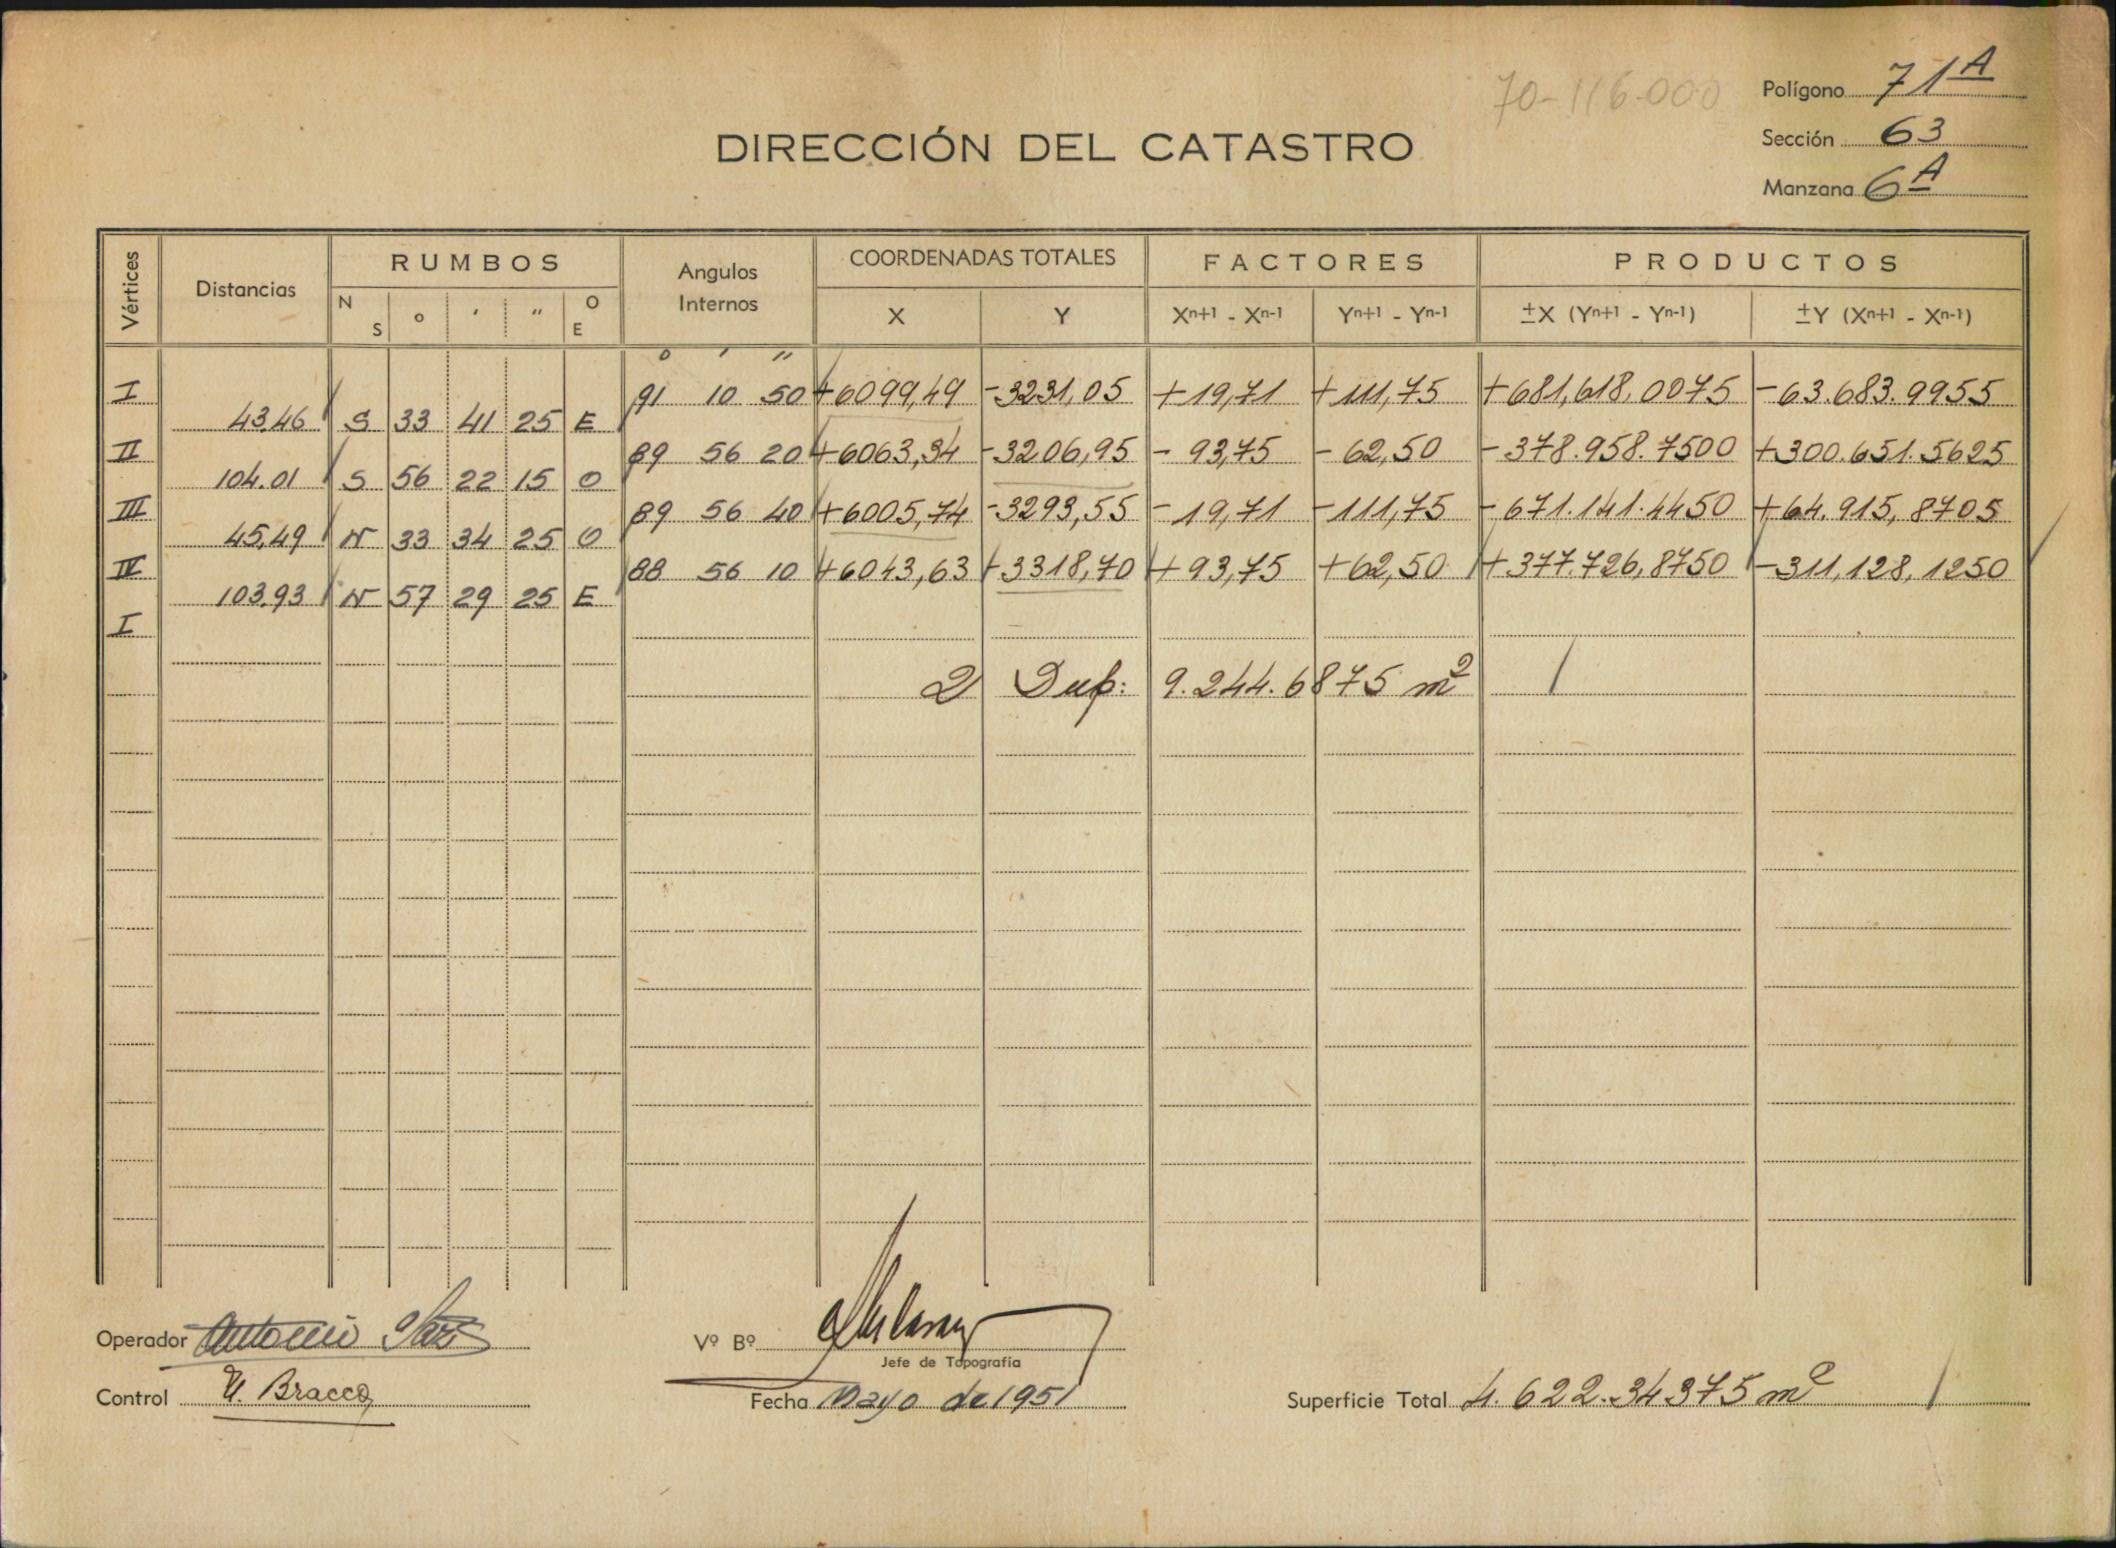 70-116.000
Polígono 71A
DIRECCIÓN DEL CATASTRO
Sección 63
Manzana 6A
Vértices Distancias RUMBOS Angulos Internos COORDENADAS TOTALES FACTORES PRODUCTOS
N S o ' " O E X Y Xn+1 - Xn-1 Yn+1 - Yn-1 ±X (Yn+1 - Yn-1) ±Y (Xn+1 - Xn-1)
o ' "
I 91 10 50 +6099,49 -3231,05 +19,71 +111,75 +681,618,0075 -63.683.9955
43,46 S 33 41 25 E
II 89 56 20 +6063,34 -3206,95 - 93,75 - 62,50 -378.958.7500 +300.651.5625
104.01 S 56 22 15 O
III 89 56 40 +6005,74 -3293,55 -19,71 -111,75 -671.141.4450 +64.915,8705
45,49 N 33 34 25 O
IV 88 56 10 +6043,63 -3318,70 +93,75 +62,50 +377.726,8750 -311,128,1250
103.93 N 57 29 25 E
I
2 Sup: 9.244.6875 m2
Operador Antonio
Vº Bº
Jefe de Topografía
Control U. Bracco
Fecha Mayo de 1951
Superficie Total 4.622.34375 m2